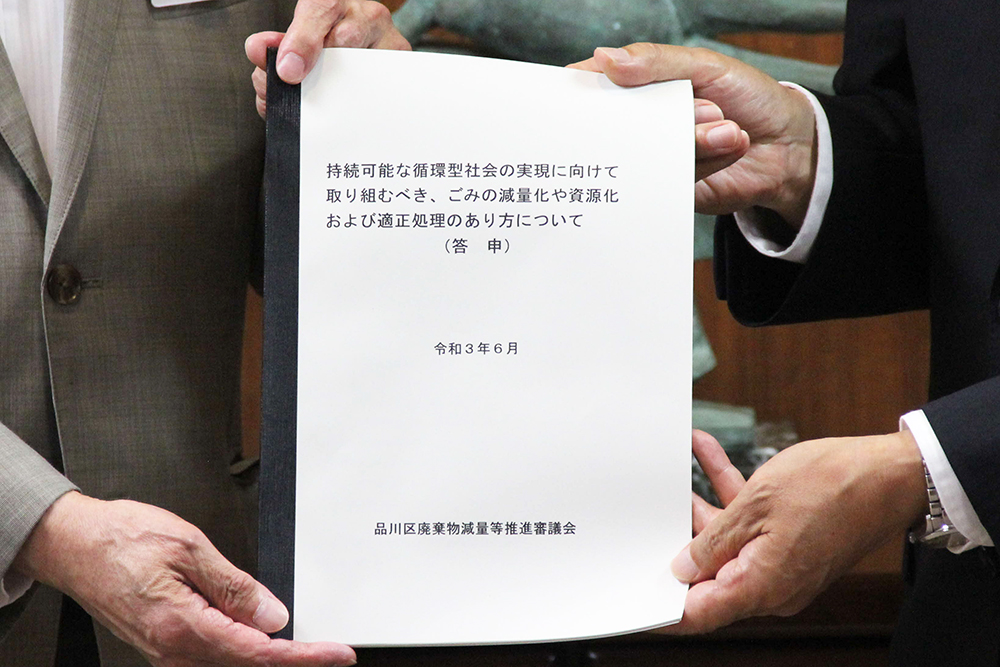 持続可能な循環型社会の実現に向けて
取り組むべき、ごみの減量化や資源化
および適正処理のあり方について
（答　申）
令和３年６月
品川区廃棄物減量等推進審議会